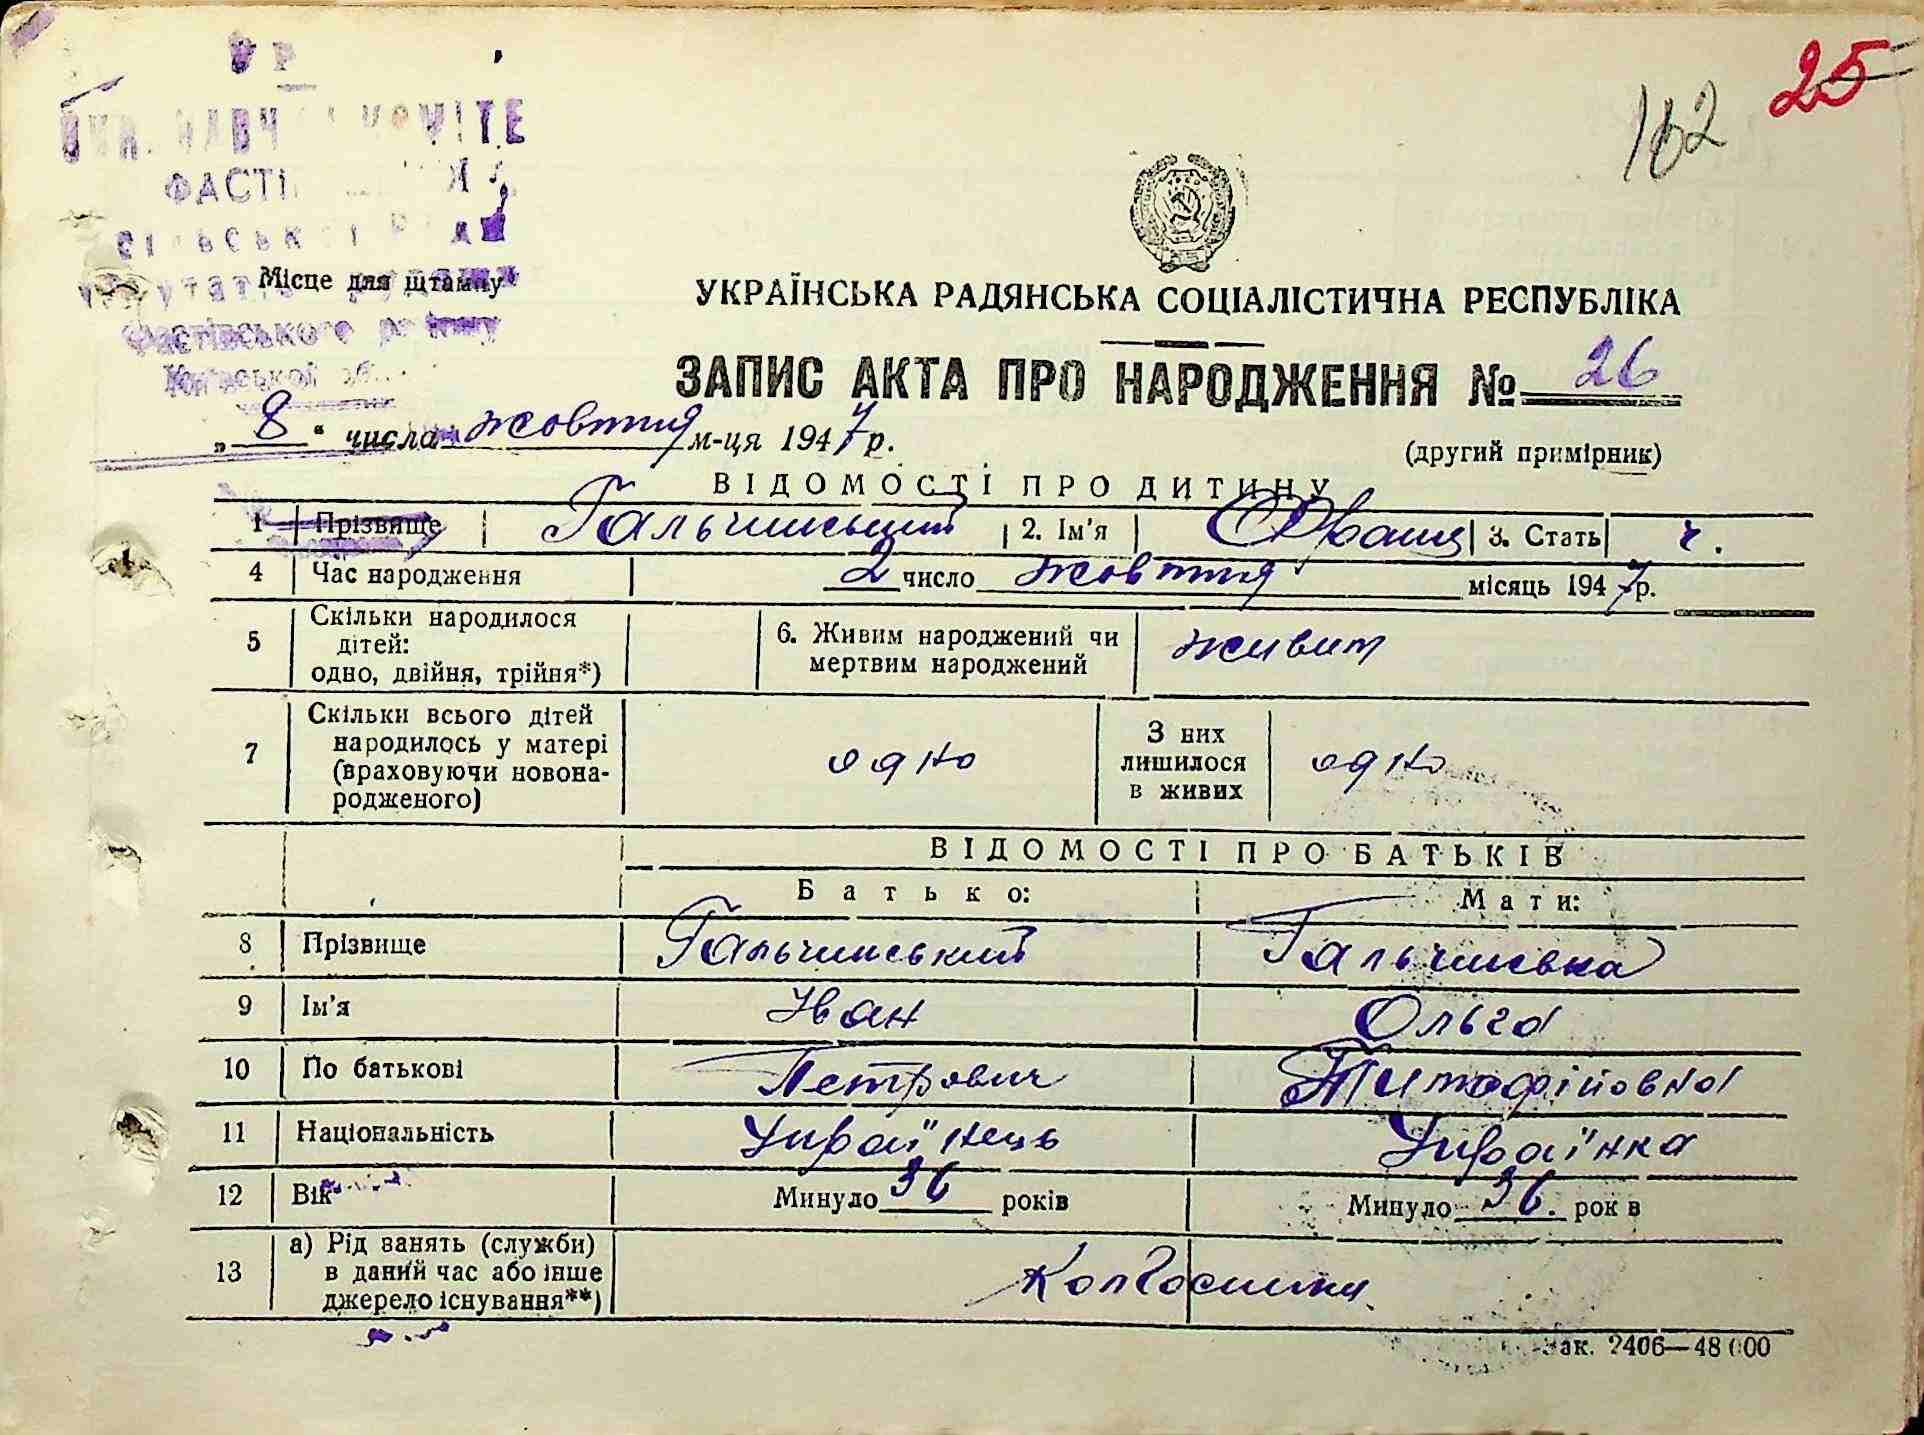 25
162
ФАСТІ
Місце для штампу
Фастівського району
Київської обл.
УКРАЇНСЬКА РАДЯНСЬКА СОЦІАЛІСТИЧНА РЕСПУБЛІКА
ЗАПИС АКТА ПРО НАРОДЖЕННЯ № 26
„ 8 “ числа жовтня м-ця 1947 р.
(другий примірник)
ВІДОМОСТІ ПРО ДИТИНУ
1 Прізвище Гальчинський 2. Ім'я 3. Стать ч.
4 Час народження 2 число жовтня місяць 1947 р.
5 Скільки народилося дітей: одно, двійня, трійня*) 6. Живим народжений чи мертвим народжений живим
7 Скільки всього дітей народилось у матері (враховуючи новонародженого) одно З них лишилося в живих одно
ВІДОМОСТІ ПРО БАТЬКІВ
Батько: Мати:
8 Прізвище Гальчинський Гальчинська
9 Ім'я Іван Ольга
10 По батькові Петрович Тимофіївна
11 Національність Українець Українка
12 Вік Минуло 36 років Минуло 36. років
13 а) Рід занять (служби) в даний час або інше джерело існування**) Колгоспники
Зак. 2406—48 000